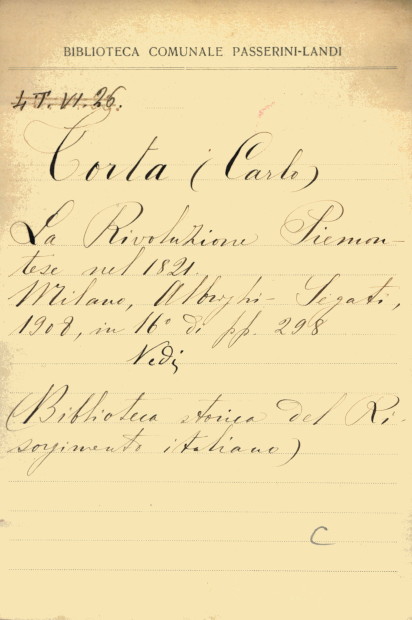 BIBLIOTECA COMUNALE PASSERINI-LANDI
4 T. VI. 26.
Torta (Carlo)
La Rivoluzione Piemon-
tese nel 1821.
Milano, Albrighi - Segati,
1908, in 16° di pp. 298
Vedi
(Biblioteca storica del Ri-
sorgimento italiano)
C